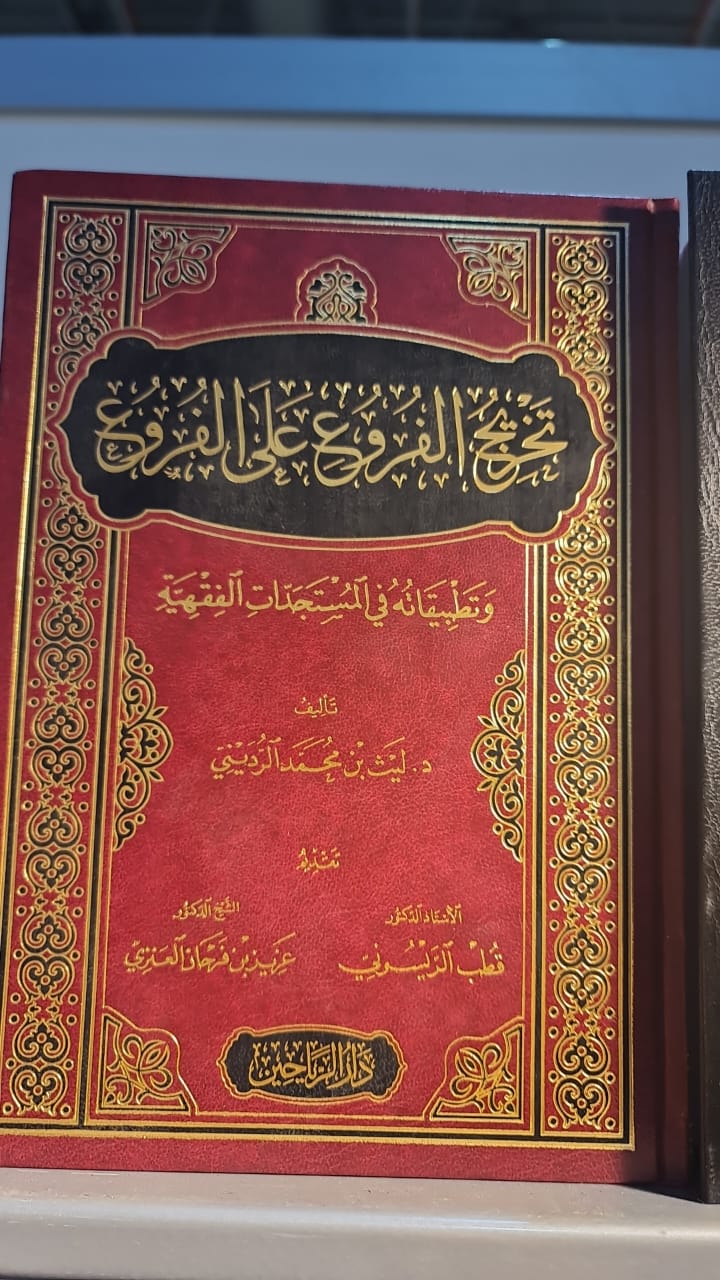 تَخْرِيجُ الفُرُوعِ عَلَى الفُرُوعِ
وَتَطْبِيقَاتُهُ فِي المُسْتَجَدَّاتِ الفِقْهِيَّةِ
تَأْلِيفُ
د. لَيْث بْنْ مُحَمَّد الرُّدَيْنِيّ
تَقْدِيمُ
الأُسْتَاذ الدكتُور
قُطْب الرَّيْسُونِيّ
الشَّيْخ الدكتُور
عَزِيز بْنْ فَرْحَان العَنَزِي
دَارُ الرَّيَاحِين